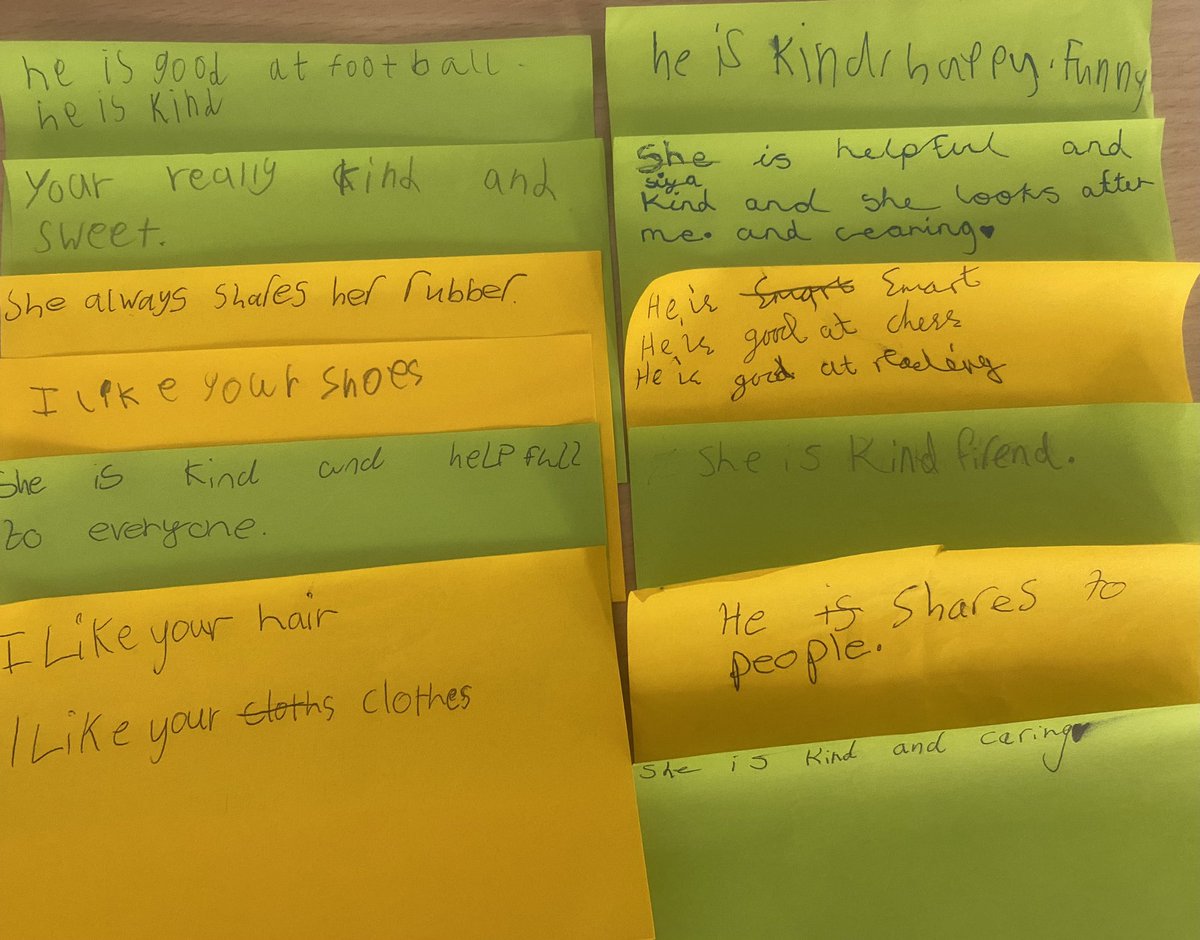 he is good at football.
he is kind
Your really kind and
sweet.
She always shares her rubber.
I like your shoes
She is kind and helpfull
to everyone.
I Like your hair
I Like your cloths clothes
he is kind happy. Funny
She is helpful and
siya
kind and she looks after
me. and cearing♥
He is Smart Smart
He is good at chess
He is good at reading
She is kind firend.
He is Shares to
people.
She is kind and caring♥